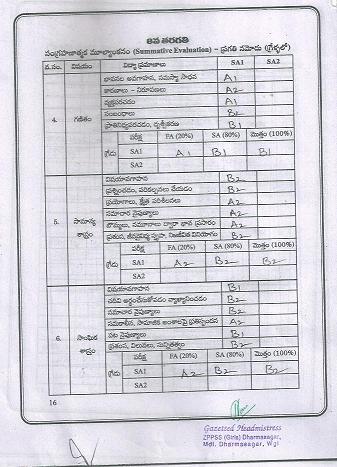 8వ తరగతి
సంగ్రహణాత్మక మూల్యాంకనం (Summative Evaluation) – ప్రగతి నమోదు (గ్రేడ్లలో)
వ.సం. విషయం విద్యా ప్రమాణాలు SA1 SA2
భావనల అవగాహన, సమస్యా సాధన A1
కారణాలు - నిరూపణలు A2
వ్యక్తపరచడం A1
4. గణితం సంబంధాలు B2
ప్రాతినిధ్యపరచడం, దృశ్యీకరణ B1
పరీక్ష FA (20%) SA (80%) మొత్తం (100%)
గ్రేడు SA1 A1 B1 B1
SA2
విషయావగాహన B2
ప్రశ్నించడం, పరికల్పనలు చేయడం B2
ప్రయోగాలు, క్షేత్ర పరిశీలనలు A2
సమాచార నైపుణ్యాలు A2
5. సామాన్య శాస్త్రం బొమ్మలు, నమూనాలు ద్వారా భావ ప్రసారం A2
B2
పరీక్ష FA (20%) SA (80%) మొత్తం (100%)
గ్రేడు SA1 A2 B2 B2
SA2
విషయావగాహన B1
చదివి అర్థంచేసుకోవడం వ్యాఖ్యానించడం B2
సమాచార నైపుణ్యాలు B2
సమకాలీన, సామాజిక అంశాలపై ప్రతిస్పందన A2
6. సాంఘిక శాస్త్రం పట నైపుణ్యాలు B1
ప్రశంస, విలువలు, సున్నితత్వం B2
పరీక్ష FA (20%) SA (80%) మొత్తం (100%)
గ్రేడు SA1 A2 B2 B2
SA2
16
Gazetted Headmistress
ZPPSS (Girls) Dharmasagar,
Mdl. Dharmasagar, Wgl